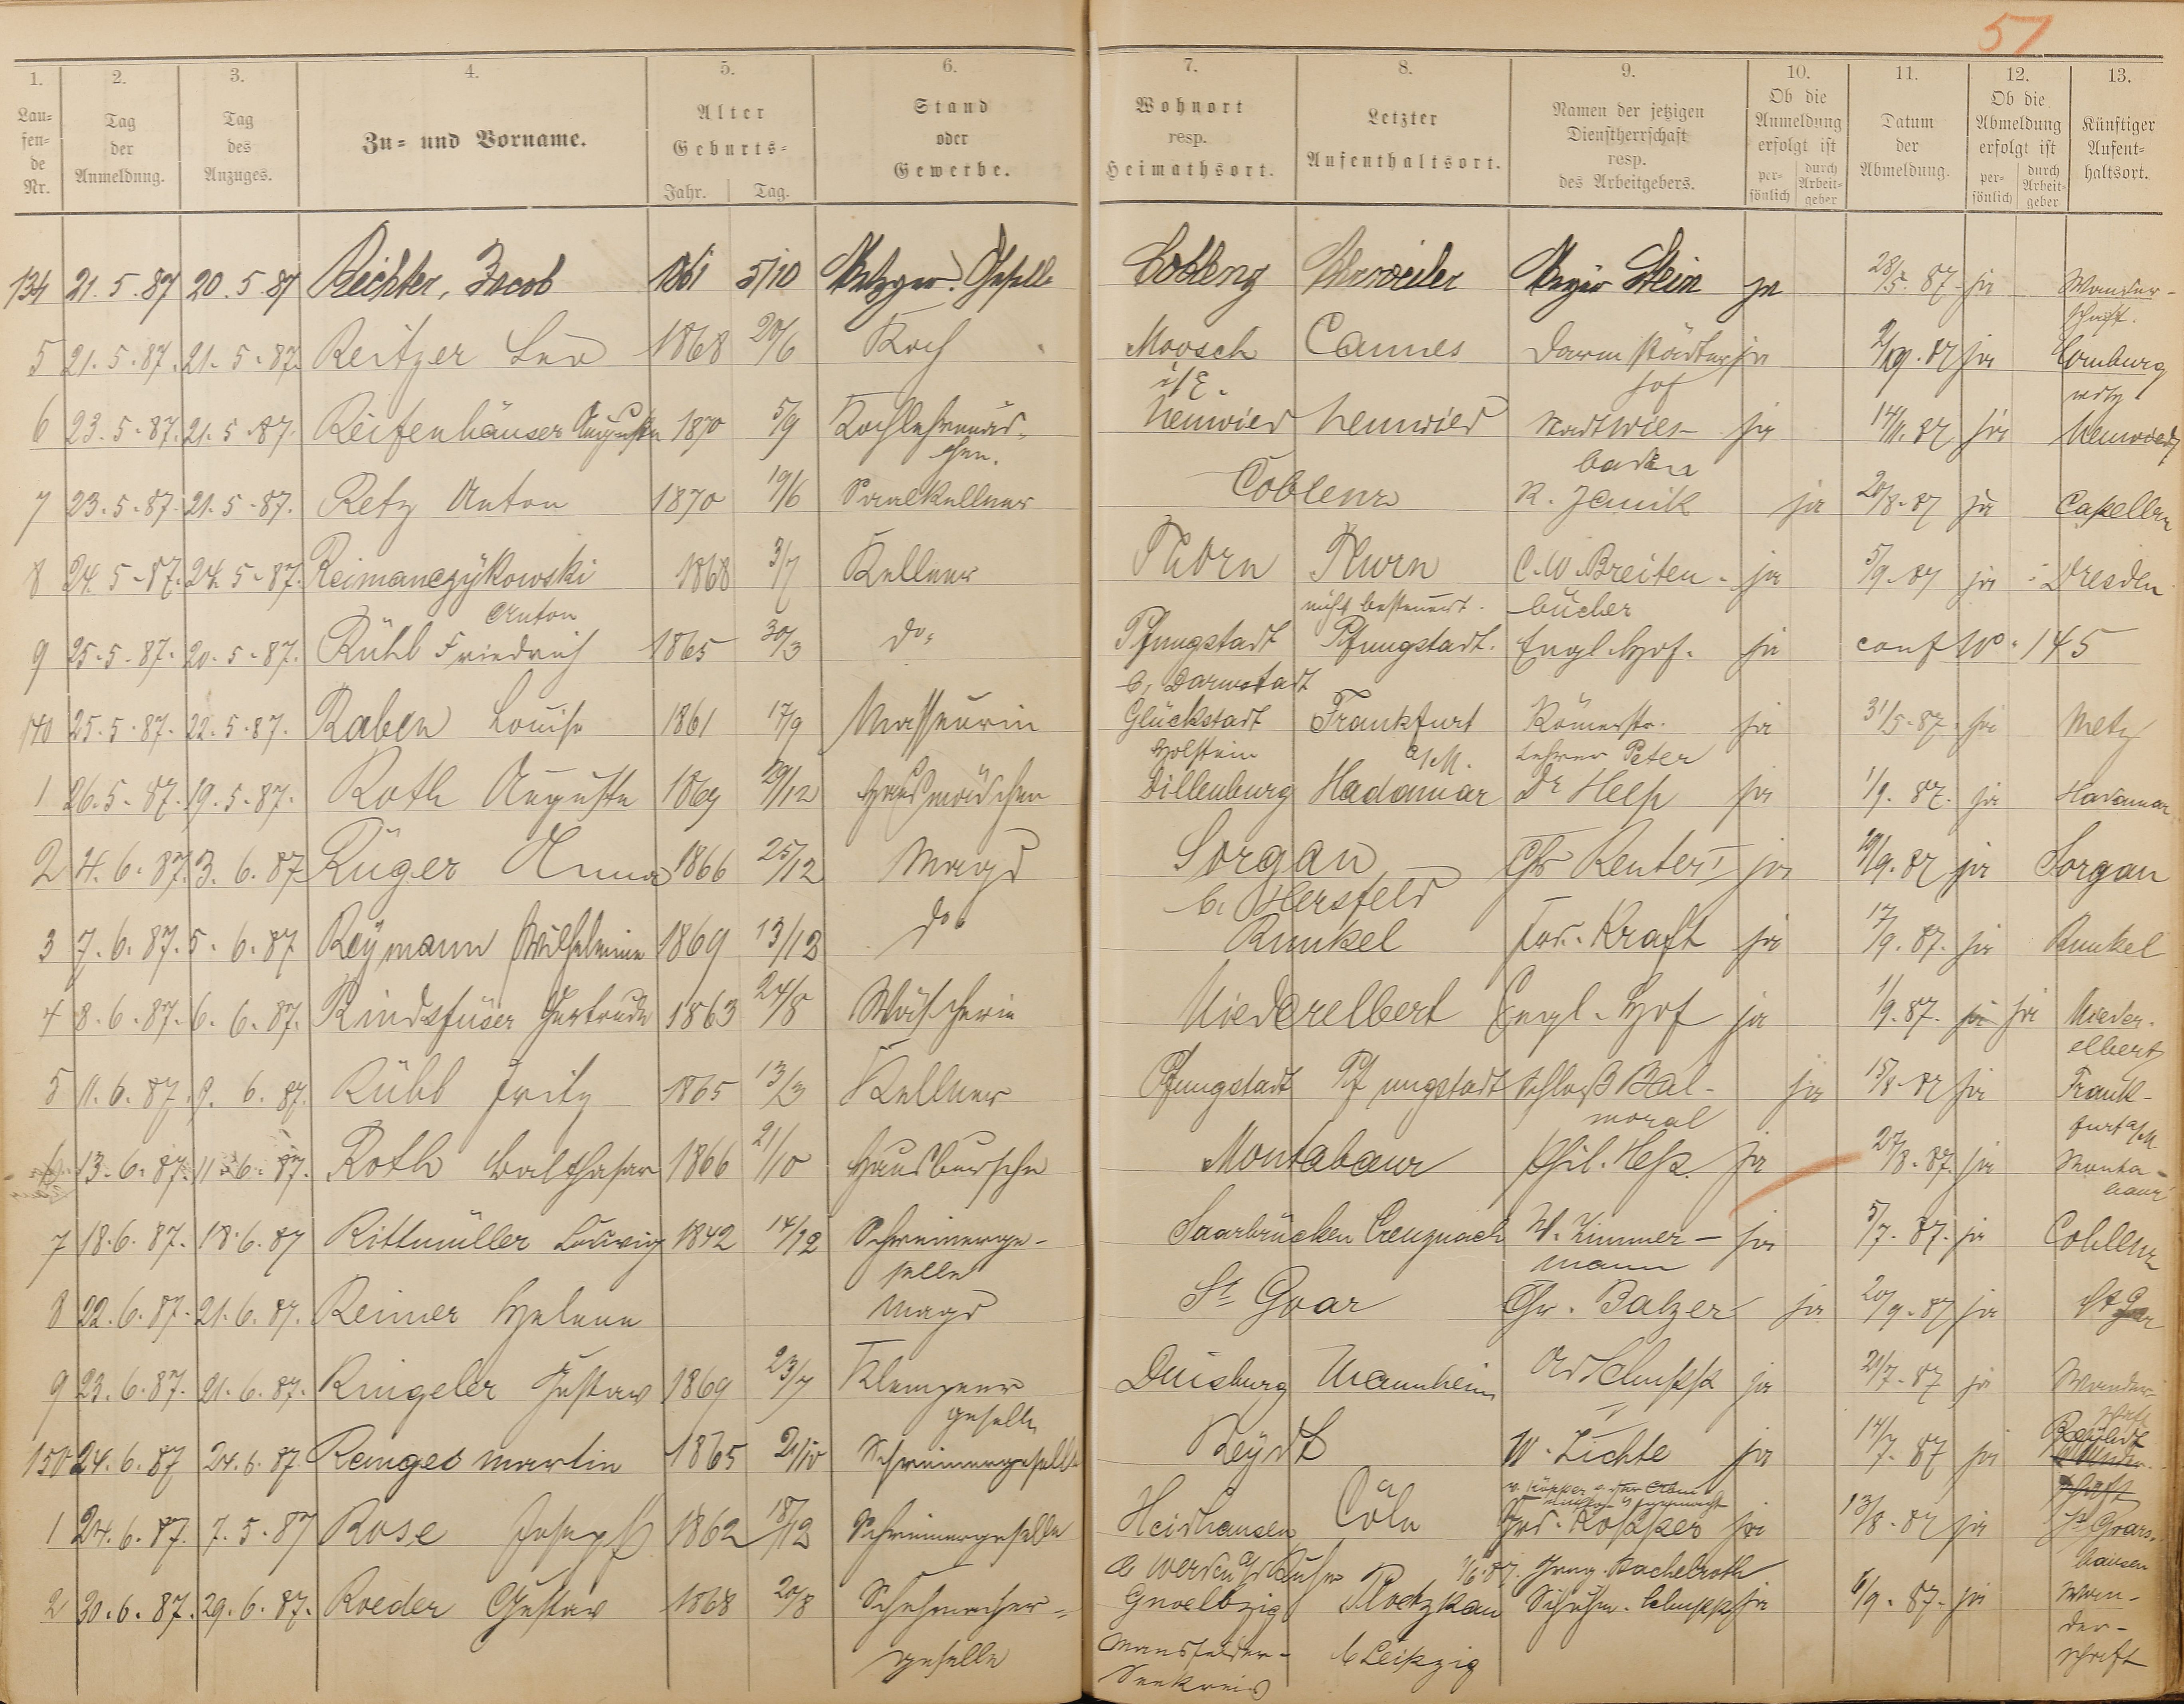 57
1. 2. 3. 4. 5. 6. 7. 8. 9. 10. 11. 12. 13.
Lau-fen-de Nr. | Tag der Anmeldung. | Tag des Anzuges. | Zu- und Vorname. | Alter Geburts- Jahr. Tag. | Stand oder Gewerbe. | Wohnort resp. Heimathsort. | Letzter Aufenthaltsort. | Namen der jetzigen Dienstherrschaft resp. des Arbeitgebers. | Ob die Anmeldung erfolgt ist per-sönlich durch Arbeit-geber | Datum der Abmeldung. | Ob die Abmeldung erfolgt ist per-sönlich durch Arbeit-geber | Künftiger Aufent-haltsort.
134 21.5.87 20.5.87 Richter, Jacob 1861 5/10 Metzger Geselle Coblenz Ahrweiler Metzger Stein ja 28/5.87 ja Wander-schaft.
5 21.5.87. 21.5.87. Reitzer Leo 1868 20/6 Koch Moosch i/E. Cannes Darmstädter hof ja 87 ja Homburg
6 23.5.87. 21.5.87. Reifenhäuser Auguste 1870 5/9 Kochlehrmäd-chen. Neuwied Neuwied Stadt Wies-baden ja 14/11.87 ja Neuwied
7 23.5.87. 21.5.87. Retz Anton 1870 19/6 Saalkellner Coblenz R. Janik ja 20/8.87 ja Capellen
8 24.5.87. 24.5.87. Reimanczykowski Anton 1868 3/7 Kellner Thorn Thorn nicht besteuert. C. W. Breiten-bücher ja 5/9.87 ja Dresden
9 25.5.87. 20.5.87. Rühl Friedrich 1865 30/3 do. Pfungstadt b. Darmstadt Pfungstadt. Engl. Hof. ja conf No. 145
140 25.5.87. 22.5.87. Raben Louise 1861 17/9 Masseurin Glückstadt Holstein Frankfurt a/M. Römerstr. Lehrer Peter ja 31/5.87. ja Metz
1 26.5.87. 19.5.87. Roth Auguste 1869 29/12 Hausmädchen Dillenburg Hadamar Dr Hess ja 1/9.87. ja Hadamar
2 4.6.87. 3.6.87 Rüger Anna 1866 25/12 Magd Sorgan b. Hersfeld Chr Reuter I ja 87 ja Sorgan
3 7.6.87. 5.6.87 Reymann Wilhelmine 1869 13/12 do Runkel Frd. Kraft ja 17/9.87. ja Runkel
4 8.6.87. 6.6.87. Rindsfüser Gertrude 1863 24/8 Wäscherin Niederelbert Engl. Hof ja 1/9.87. ja ja Nieder-elbert
5 11.6.87. 9.6.87. Rühl Fritz 1865 13/3 Kellner Pfungstadt Pfungstadt Schloß Bal-moral ja 15/8.87 ja Frank-furt a/M
6 13.6.87. 11.6.87. Roth Balthasar 1866 21/10 Hausbursche Montabaur Phil. Hess. ja 27/8.87. ja Monta-baur
7 18.6.87. 18.6.87 Rittmüller Ludwig 1842 14/12 Schreinerge-selle Saarbrücken Creuznach W. Zimmer-mann ja 5/7.87. ja Coblenz
8 22.6.87. 21.6.87. Reimer Helene Magd St Goar Chr. Balzer ja 20/9.87 ja St Goar
9 23.6.87. 21.6.87. Ringeler Gustav 1869 23/7 Klempner geselle Duisburg Mannheim Ad Schupp ja 21/7.87 ja Wander-schaft
150 24.6.87 24.6.87. Reinges Martin 1865 21/10 Schreinergeselle Reydt W. Lichte ja 14/7.87 ja Rheydt Wander-schaft
1 24.6.87. 7.5.87 Rose Joseph 1862 18/12 Schreinergeselle Heidhausen b Werden a/d Ruhr Cöln Frd. Kopper 1/6.87. Jung. Bachelroth ja 13/8.87 ja
2 30.6.87. 29.6.87. Roeder Gustav 1868 20/8 Schuhmacher-geselle Gnoelbzig Mansfelder-Seekreis Plotzkau b Leipzig Schuhm. Schupp ja 6/9.87. ja Wan-der-schaft